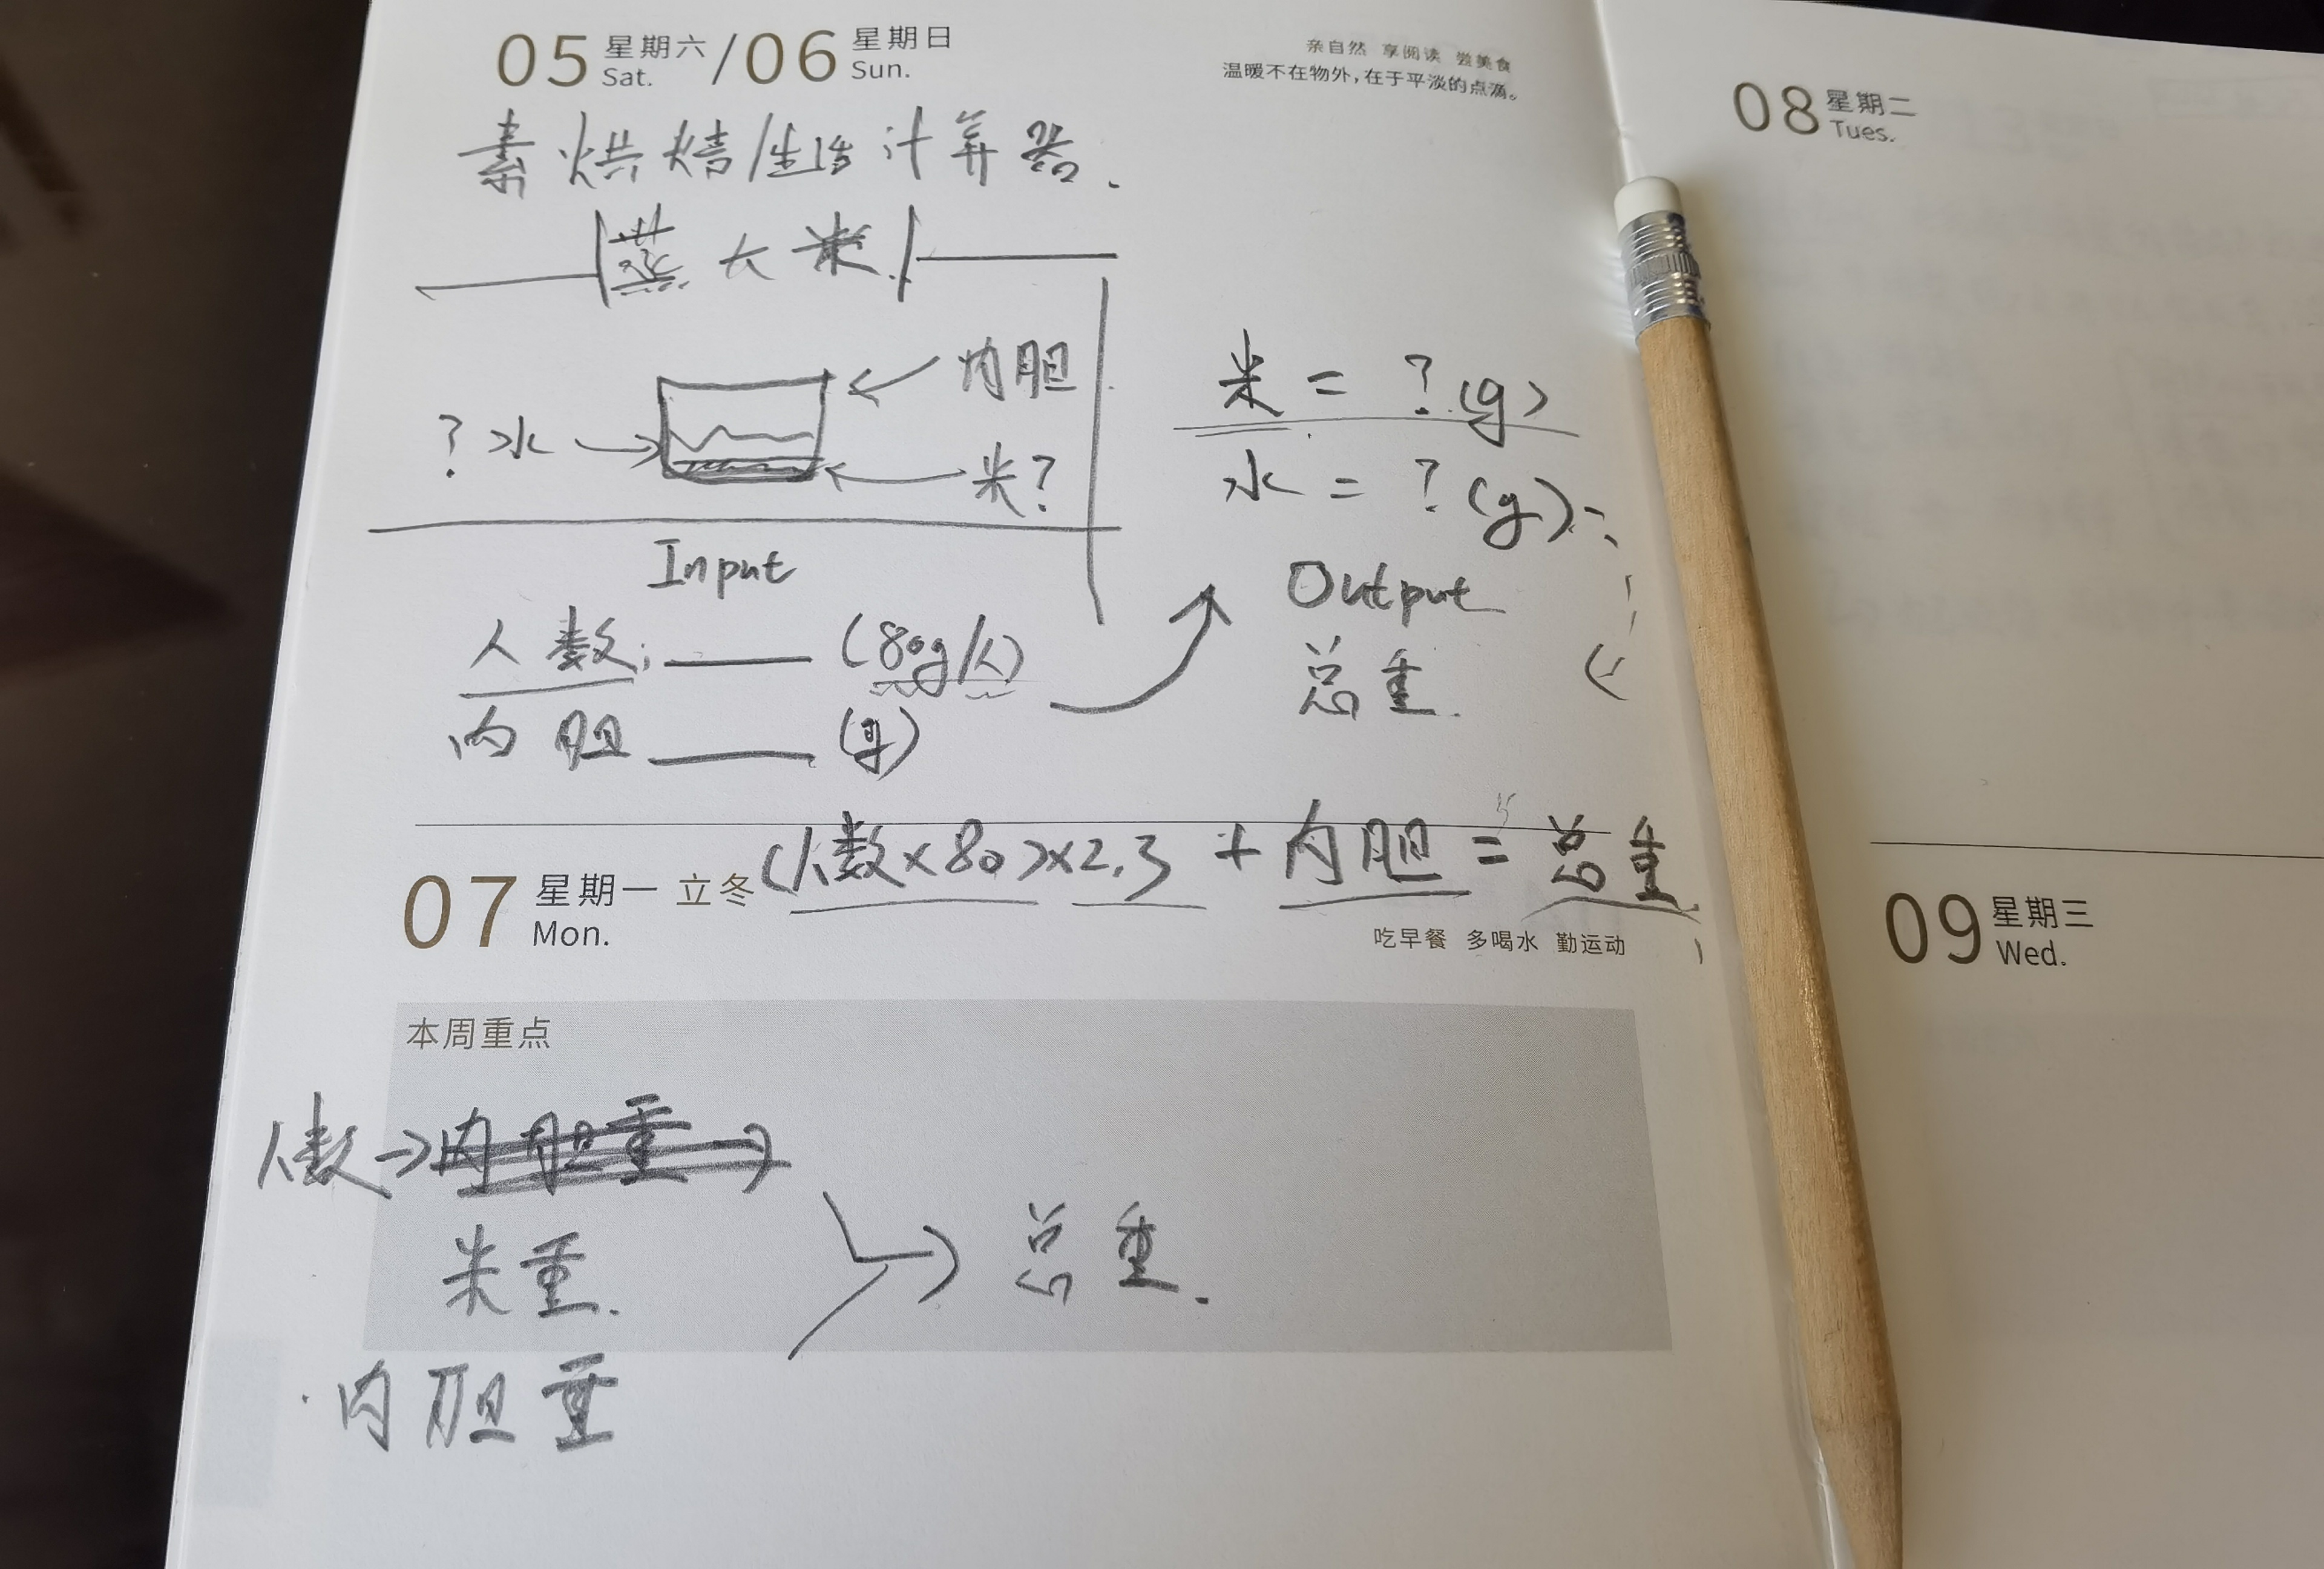 05 星期六 Sat. / 06 星期日 Sun.
亲自然 享阅读 尝美食
温暖不在物外，在于平淡的点滴。
素烘焙/生活计算器.
蒸大米.
内胆
? 水
米?
米 = ? (g)
水 = ? (g)
Input
Output
人数: (80g/人)
总重.
内胆 (g)
(人数×80)×2.3 + 内胆 = 总重
07 星期一 立冬
Mon.
吃早餐 多喝水 勤运动
本周重点
人数→内胆重→
米重.
总重.
内胆重
08 星期二
Tues.
09 星期三
Wed.